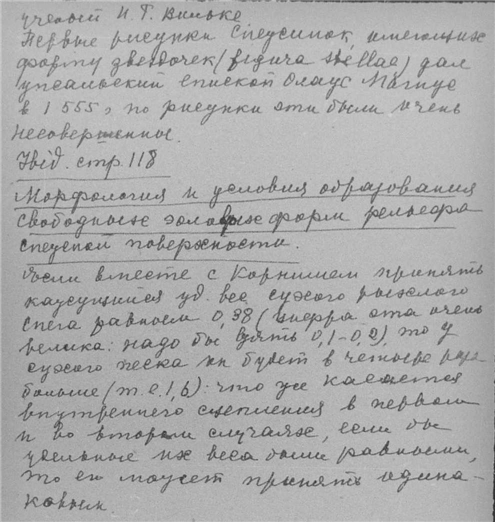 ученый И. Г. Вильке
Первые рисунки снежинок, имеющих
форму звездочек (figura stellae) дал
упсальский епископ Олаус Магнус
в 1555, но рисунки эти были очень
несовершенное.
Ibid. стр. 118
Морфология и условия образования
свободных эоловых форм рельефа
снежной поверхности.
Если вместе с Корнишем принять
кажущийся уд. вес сухого рыхлого
снега равным 0,38 (цифра эта очень
велика: надо бы взять 0,1-0,2), то у
сухого песка он будет в четыре раза
больше (т.е. 1,6): что же касается
внутреннего сцепления в первом
и во втором случаях, если бы
удельные их веса были равными,
то ея может принять одина-
ковым.